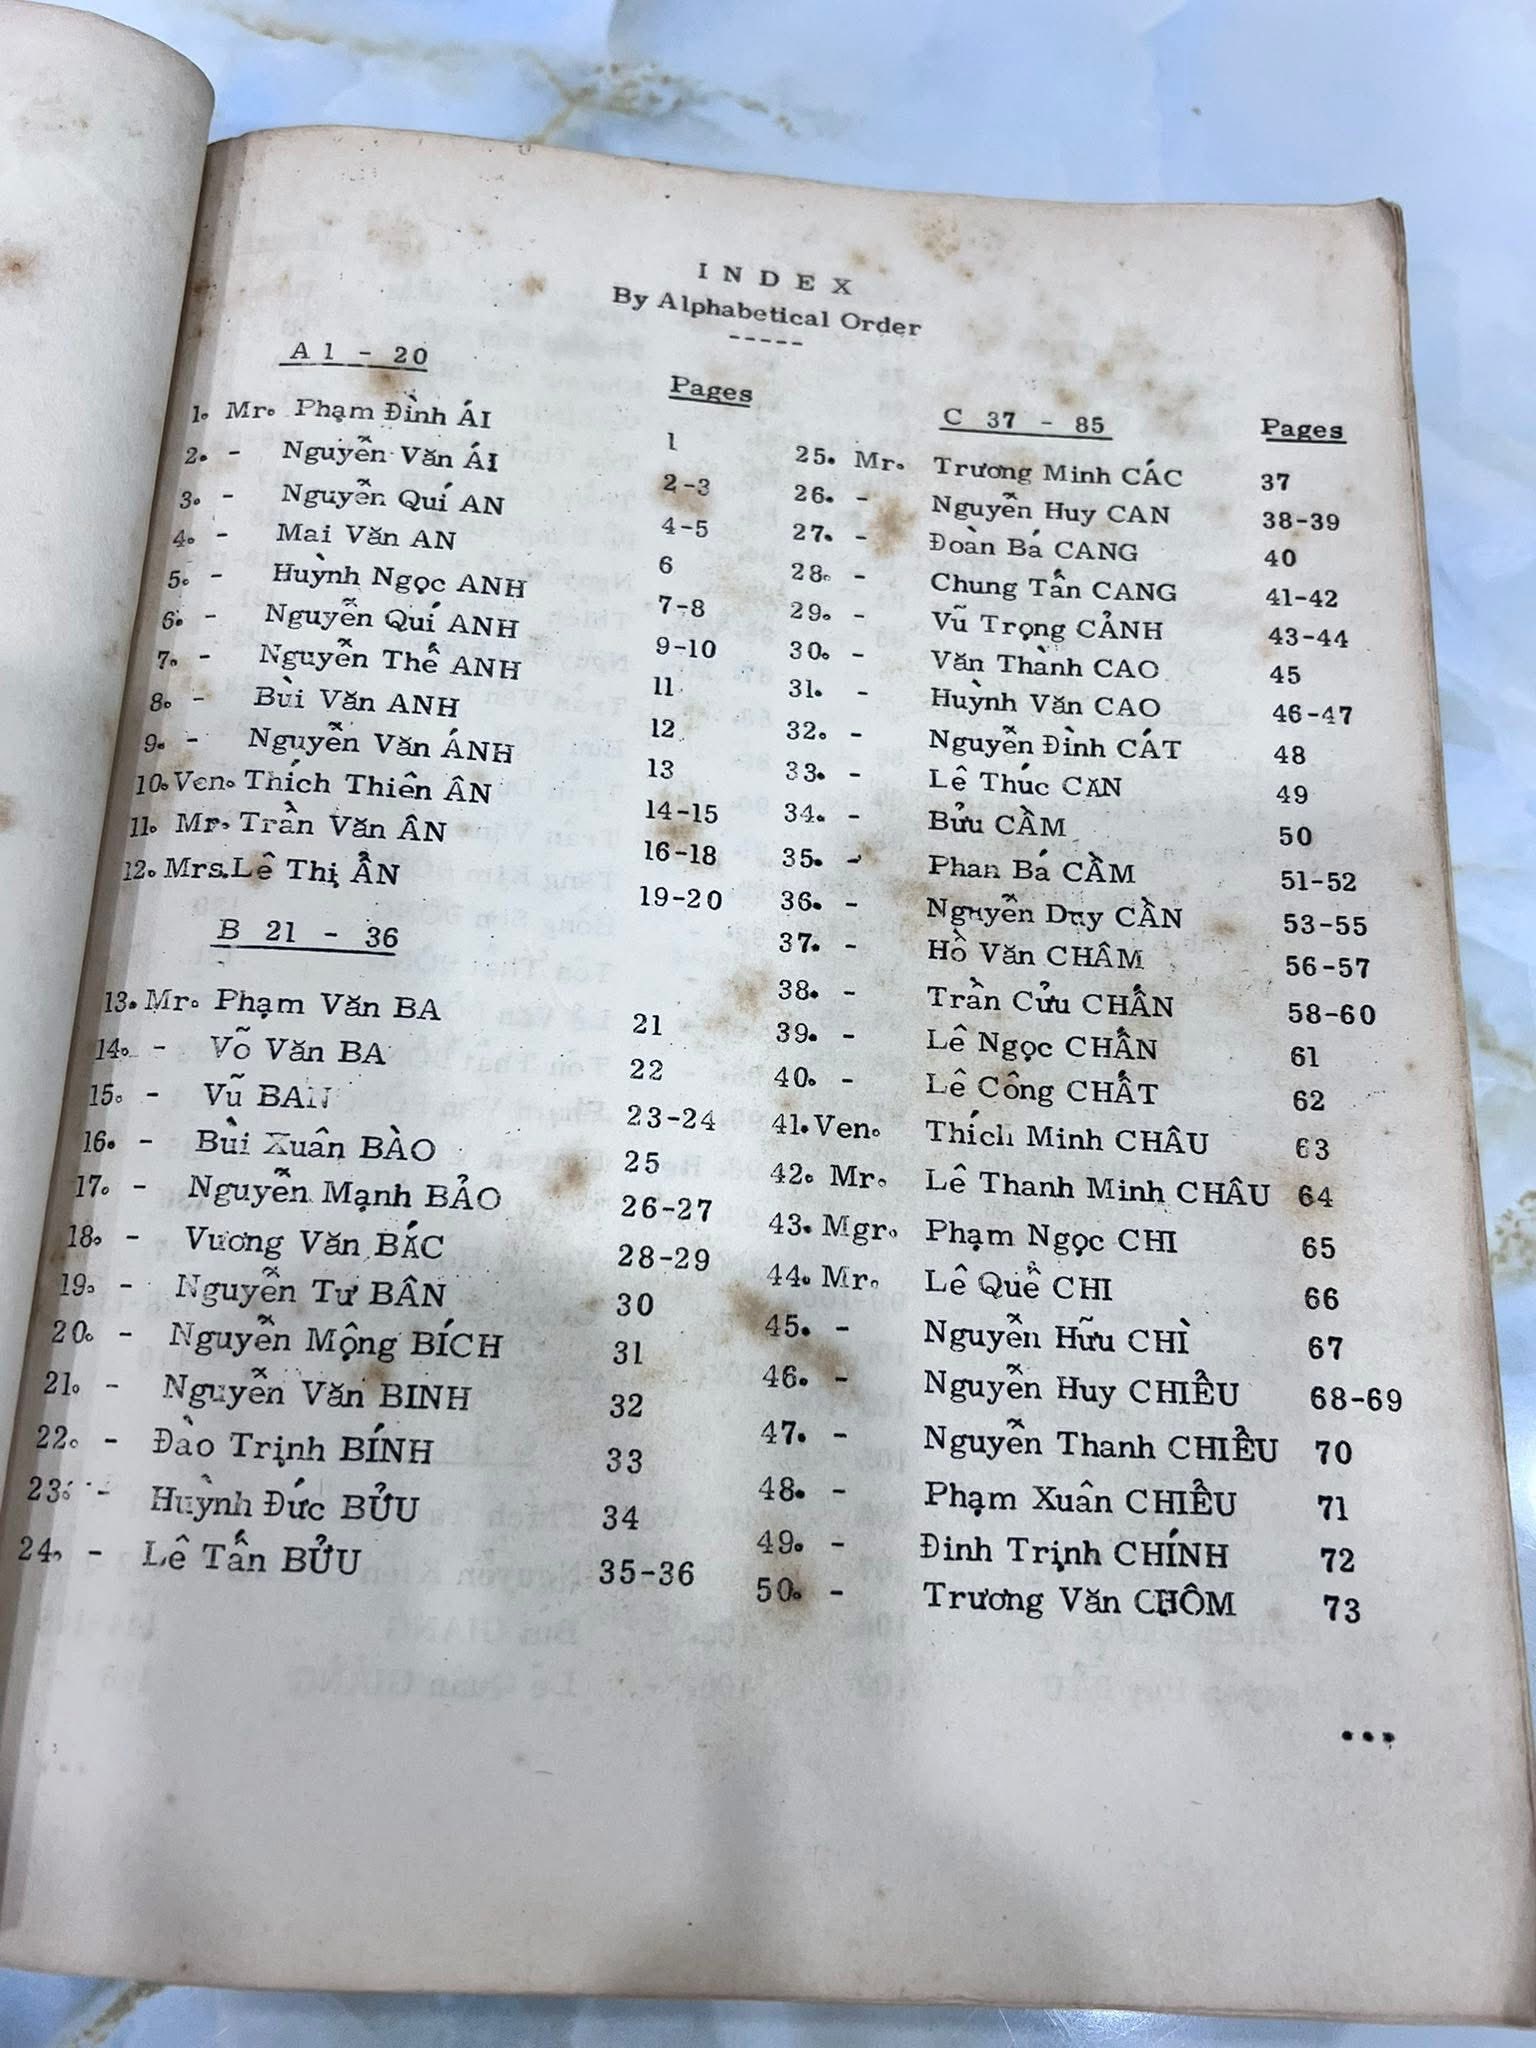 INDEX
By Alphabetical Order
-----
A 1 - 20 Pages
1. Mr. Phạm Đình ÁI 1
2. - Nguyễn Văn ÁI 2-3
3. - Nguyễn Quí AN 4-5
4. - Mai Văn AN 6
5. - Huỳnh Ngọc ANH 7-8
6. - Nguyễn Quí ANH 9-10
7. - Nguyễn Thế ANH 11
8. - Bùi Văn ANH 12
9. - Nguyễn Văn ÁNH 13
10. Ven. Thích Thiên ÂN 14-15
11. Mr. Trần Văn ÂN 16-18
12. Mrs. Lê Thị ẨN 19-20
B 21 - 36
13. Mr. Phạm Văn BA 21
14. - Võ Văn BA 22
15. - Vũ BAN 23-24
16. - Bùi Xuân BÀO 25
17. - Nguyễn Mạnh BẢO 26-27
18. - Vương Văn BẮC 28-29
19. - Nguyễn Tư BÂN 30
20. - Nguyễn Mộng BÍCH 31
21. - Nguyễn Văn BINH 32
22. - Đào Trịnh BÍNH 33
23. - Huỳnh Đức BỬU 34
24. - Lê Tấn BỬU 35-36
C 37 - 85 Pages
25. Mr. Trương Minh CÁC 37
26. - Nguyễn Huy CAN 38-39
27. - Đoàn Bá CANG 40
28. - Chung Tấn CANG 41-42
29. - Vũ Trọng CẢNH 43-44
30. - Văn Thành CAO 45
31. - Huỳnh Văn CAO 46-47
32. - Nguyễn Đình CÁT 48
33. - Lê Thúc CĂN 49
34. - Bửu CẦM 50
35. - Phan Bá CẦM 51-52
36. - Nguyễn Duy CẦN 53-55
37. - Hồ Văn CHÂM 56-57
38. - Trần Cửu CHẤN 58-60
39. - Lê Ngọc CHẤN 61
40. - Lê Công CHẤT 62
41. Ven. Thích Minh CHÂU 63
42. Mr. Lê Thanh Minh CHÂU 64
43. Mgr. Phạm Ngọc CHI 65
44. Mr. Lê Quề CHI 66
45. - Nguyễn Hữu CHÌ 67
46. - Nguyễn Huy CHIỂU 68-69
47. - Nguyễn Thanh CHIỂU 70
48. - Phạm Xuân CHIỂU 71
49. - Đinh Trịnh CHÍNH 72
50. - Trương Văn CHÔM 73
...